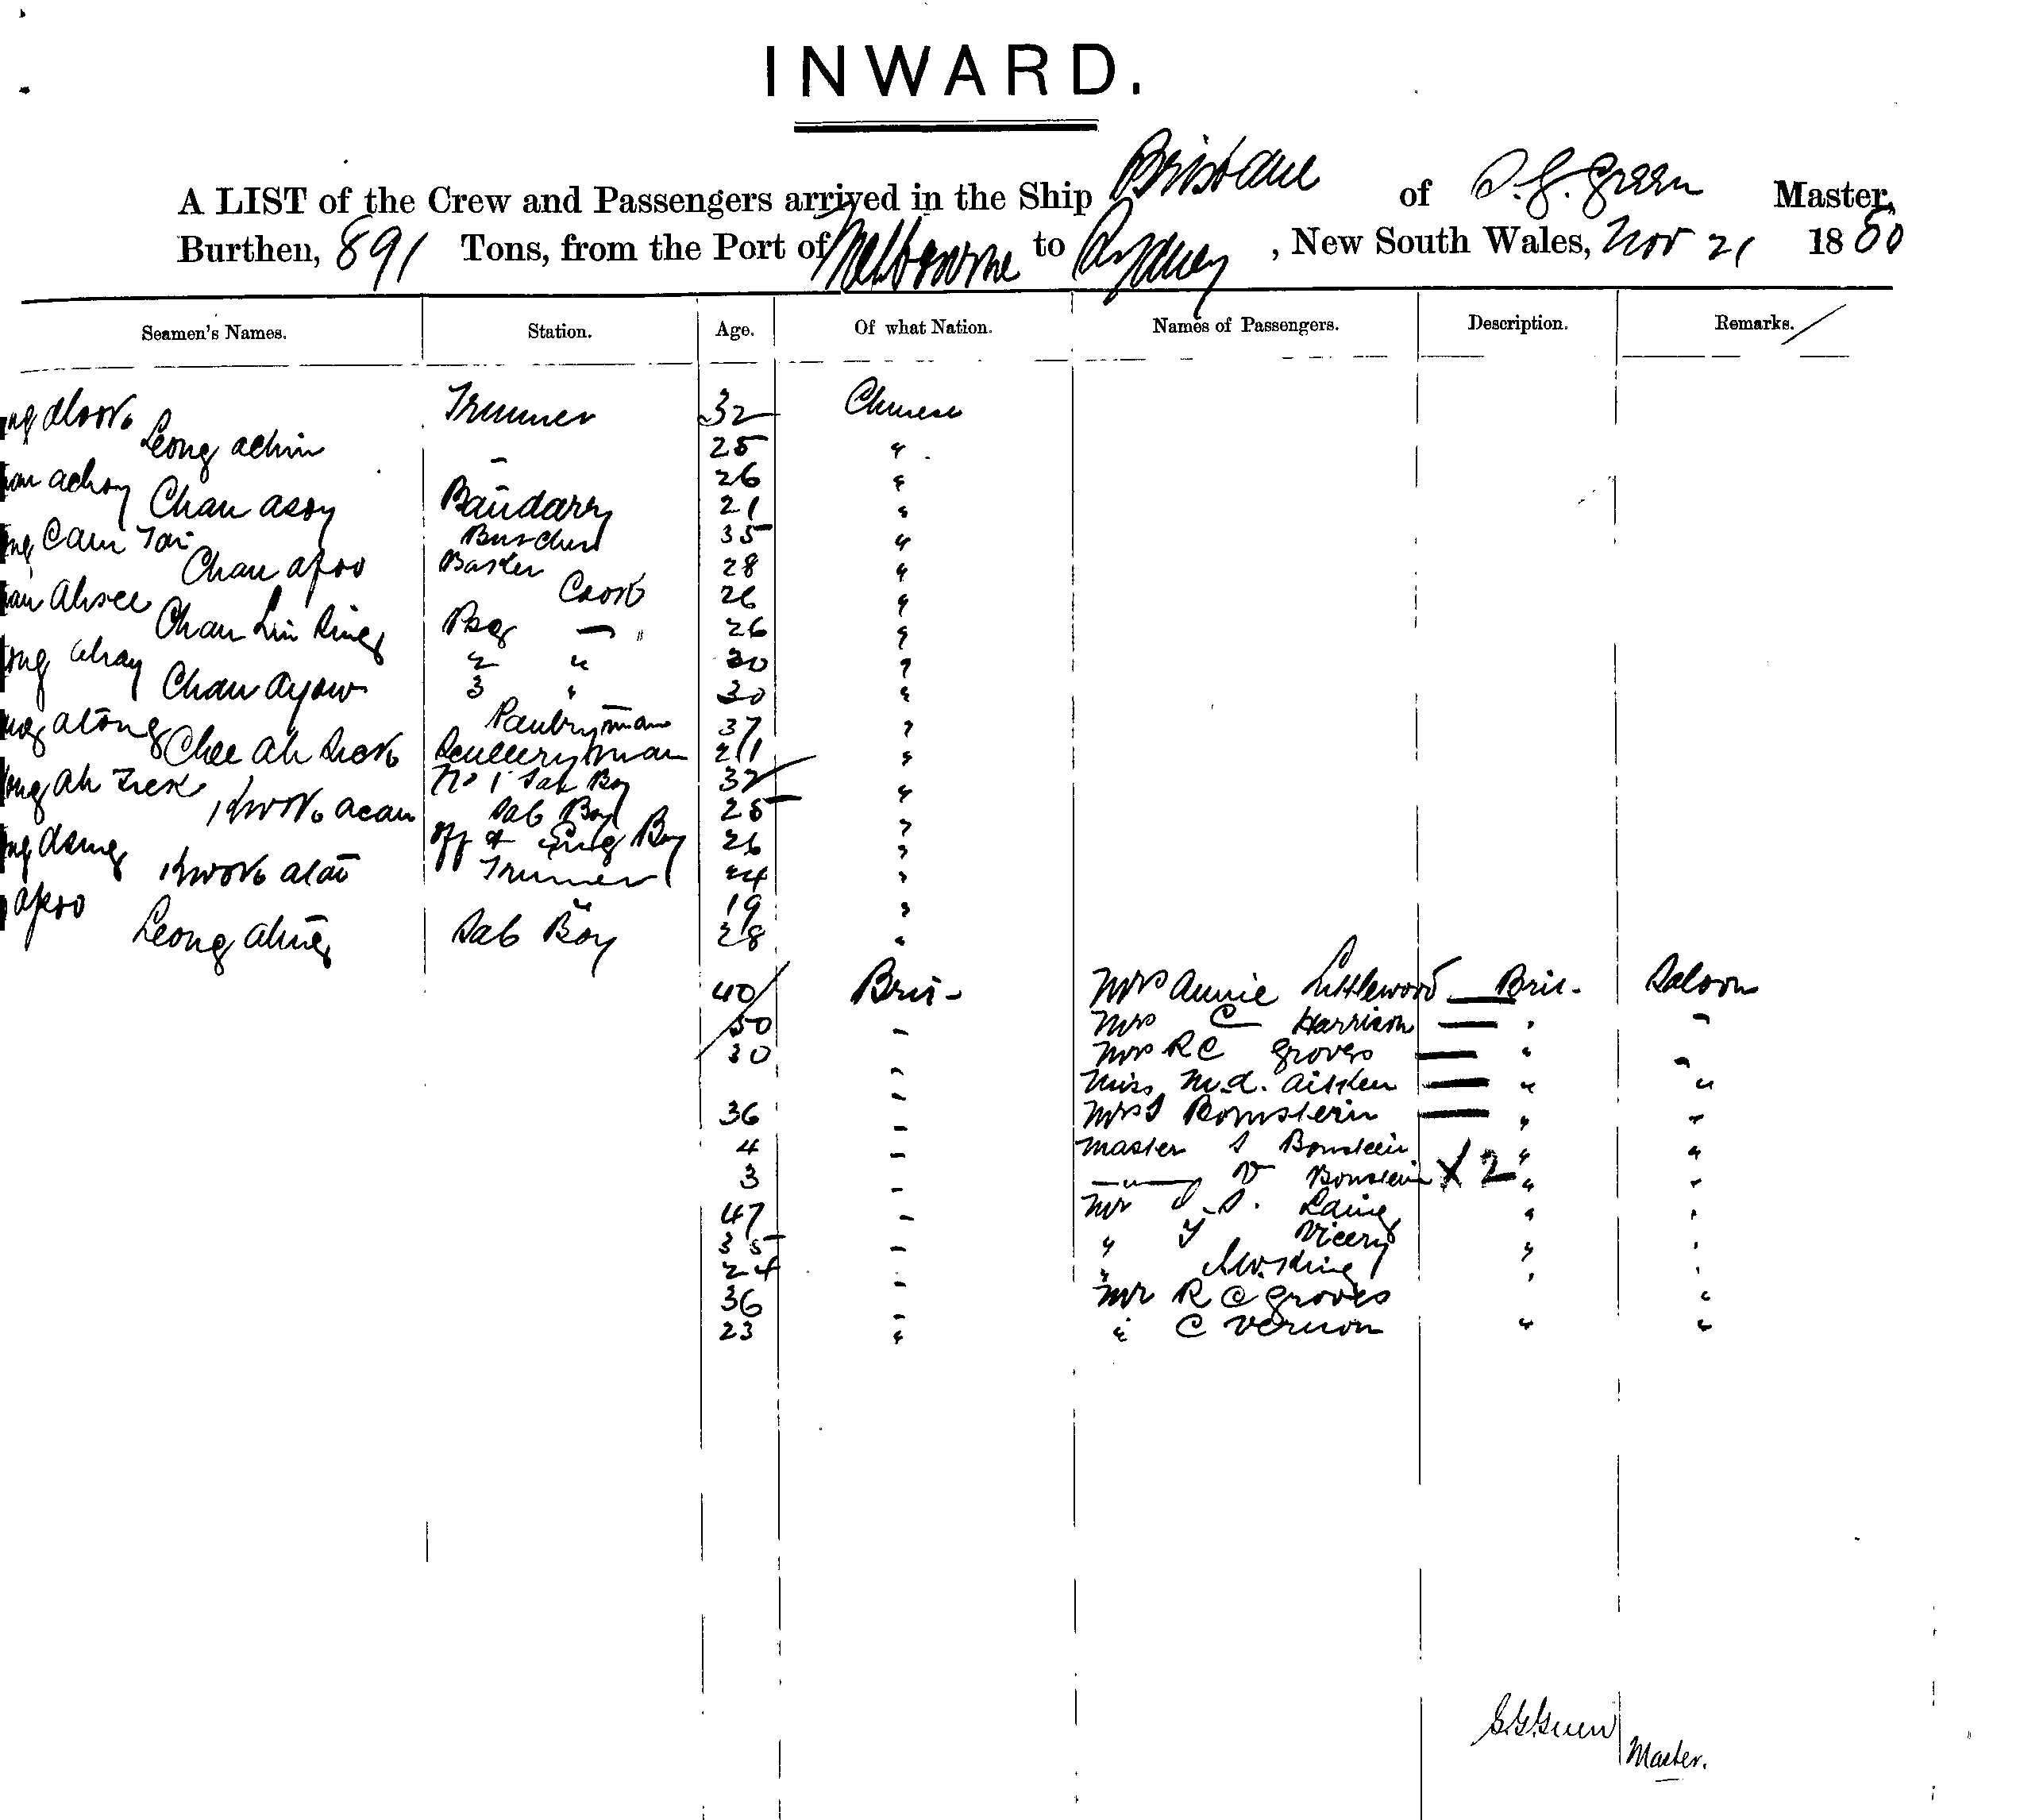 INWARD.
A LIST of the Crew and Passengers arrived in the Ship Brisbane of S. G. Green Master,
Burthen, 891 Tons, from the Port of Melbourne to Sydney, New South Wales, Nov 21 1880
Seamen's Names. Station. Age. Of what Nation. Names of Passengers. Description. Remarks.
Trimmer 32 Chinese
Leong achin 25 "
achoy 26 "
Chan asoy Bandarry 21 "
Cam Tai Butcher 35 "
Chan afoo Baker 28 "
Ahsee Cook 26 "
Chan Lin 26 "
ahay 2 " 30 "
Chan Ayow 3 " 30 "
atong Pantryman 37 "
Chee ah Scullery man 21 "
ah No 1 Sal Boy 32 "
Kwok acan Sal Boy 25 "
off & Eng Boy 26 "
Kwok Trimmer 24 "
afoo " 19 "
Leong Sal Boy 28 "
40 Bris- Mrs Annie Littlewood Bris. Saloon
50 " Mrs C Harrison " "
30 " Mrs R C Groves " "
" Miss M. A. Aitken " "
36 " Mrs S Bornstein " "
4 " Master S Bornstein " "
3 " " V Bornstein X 2 " "
47 " Mr Laing " "
35 " " Vicery " "
24 " " King " "
36 " Mr R C Groves "
23 " " C Vernon " "
S.G. Green Master.